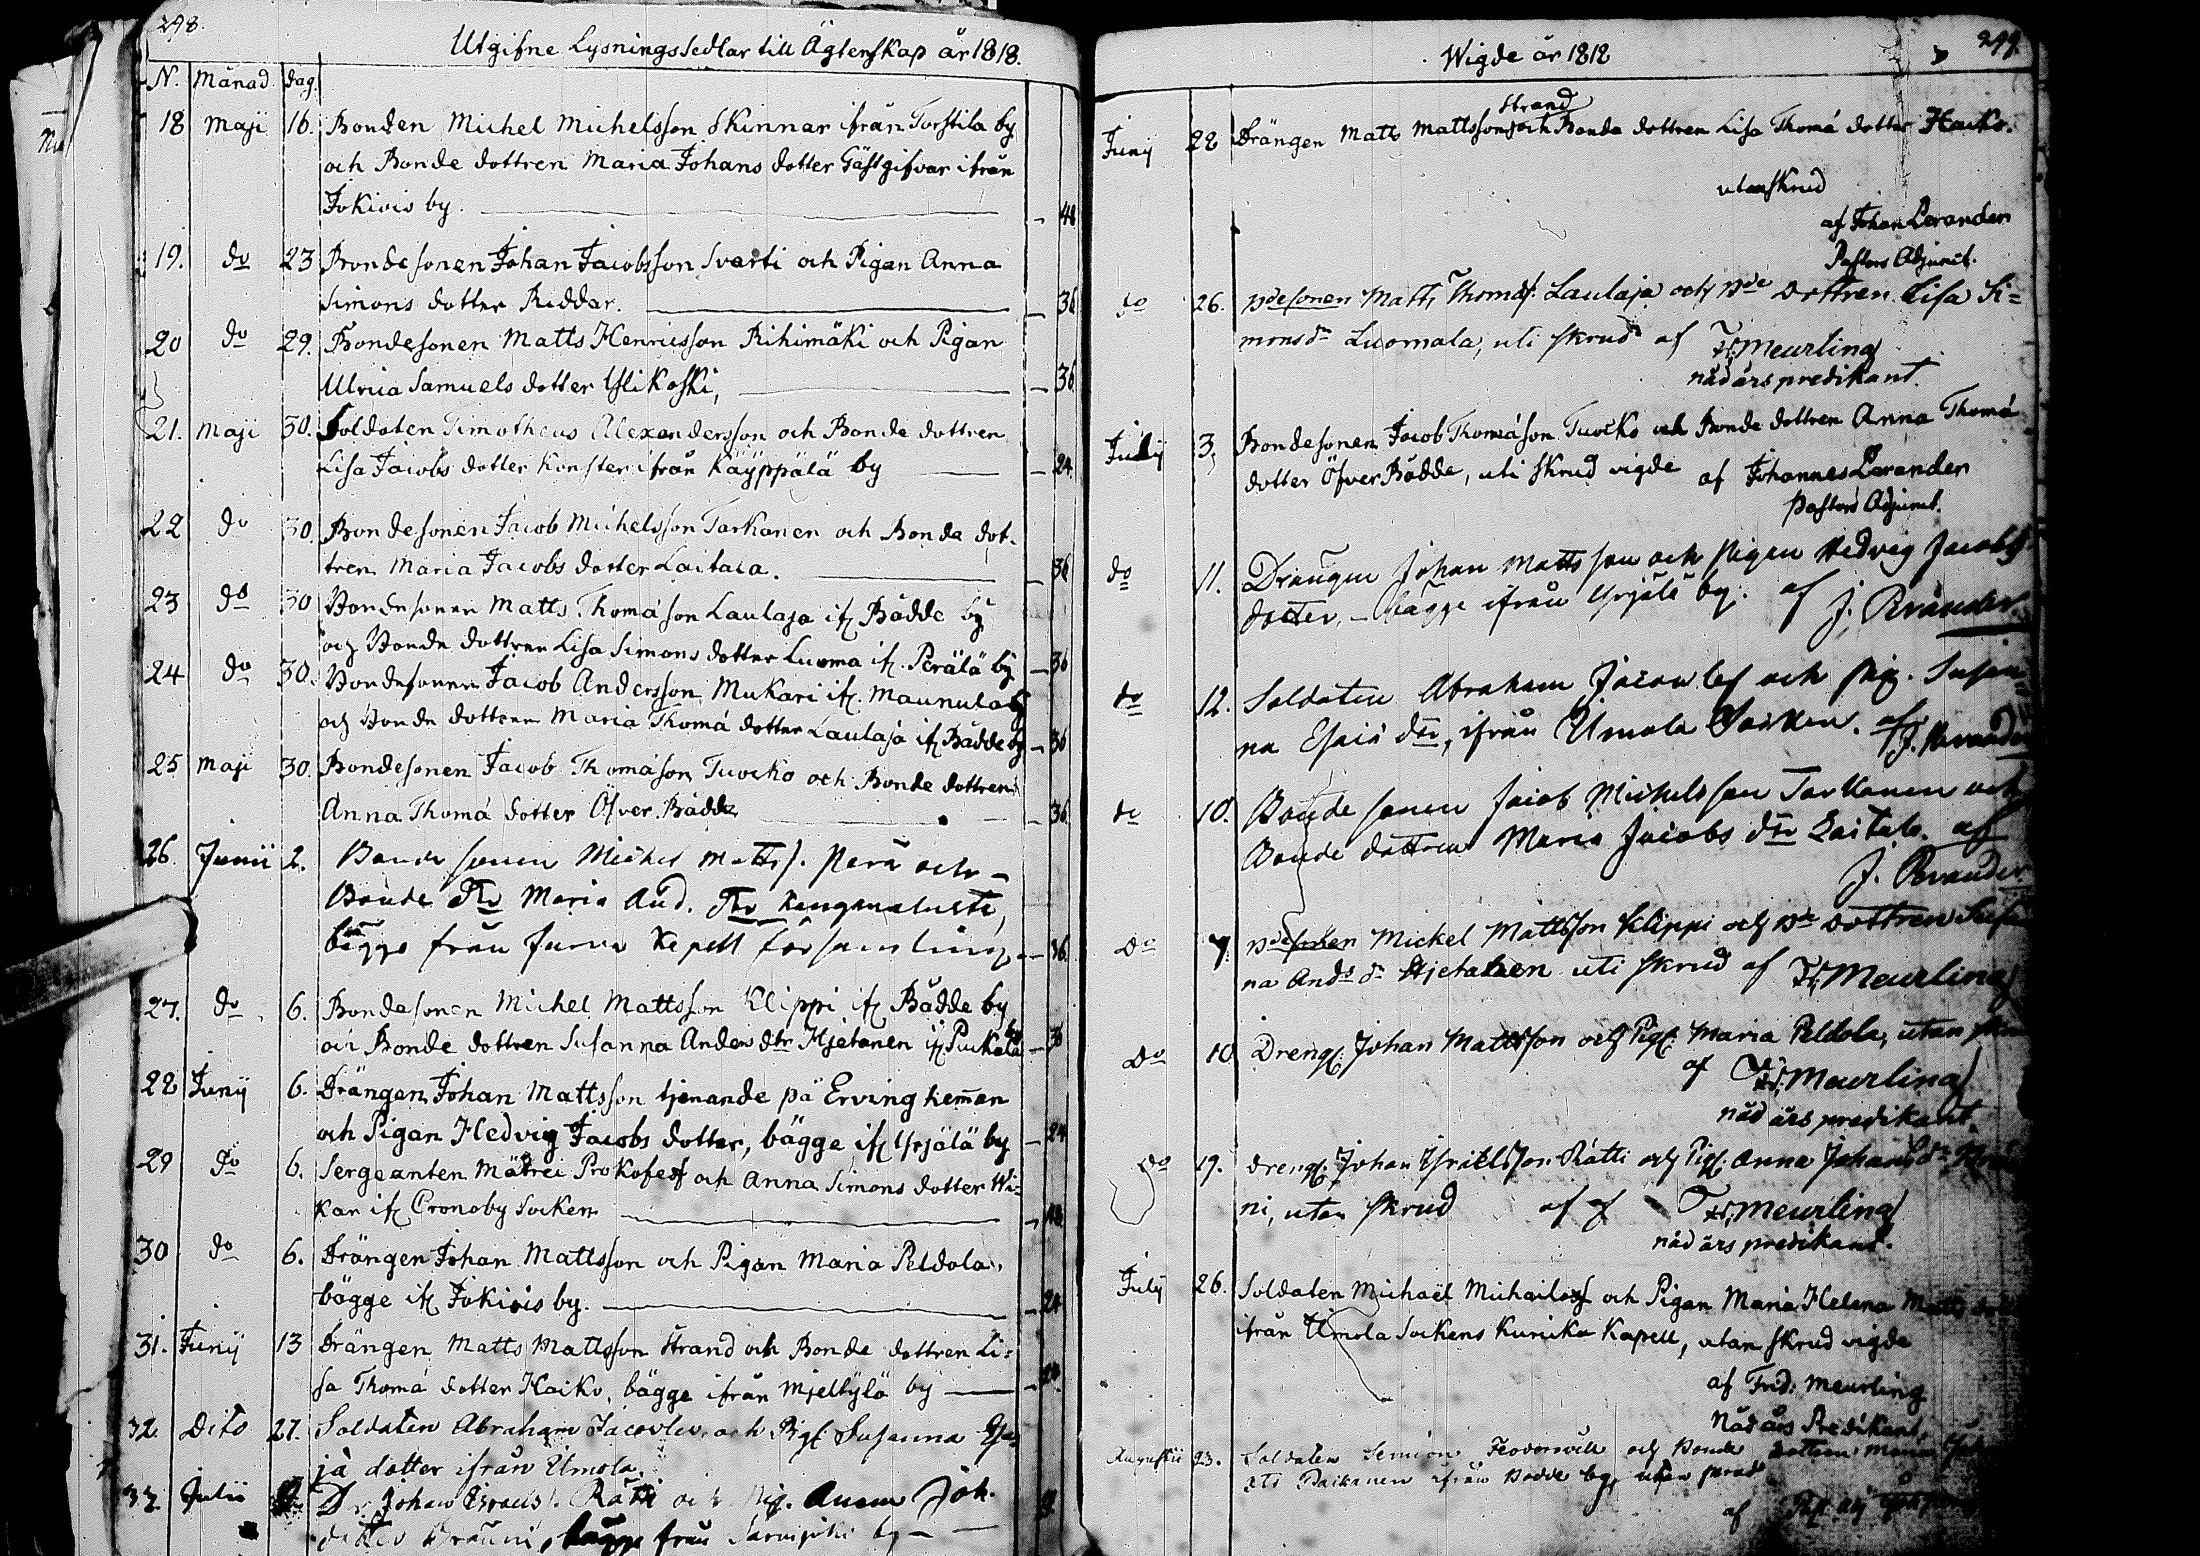 298.
Utgifne Lysningssedlar till Ägtenskap år 1818.
N. Månad dag.
18 Maji 16. Bonden Michel Michelsson Skinnar ifrån Torstila by
och Bonde dottren Maria Johans dotter Gästgifvar ifrån
Jokivis by. — 48
19. do 23 Bondesonen Johan Jacobsson Svarti och Pigan Anna
Simons dotter Riddar. — 36
20 do 29. Bondesonen Matts Henricsson Rihimäki och Pigan
Ulrica Samuels dotter Ylikoski, — 36
21. Maji 30. Soldaten Timotheus Alexandersson och Bonde dottren
Lisa Jacobs dotter Konster ifrån Käyppälä by — 24.
22 do 30. Bondesonen Jacob Michelsson Tarkanen och Bonde dot-
tren Maria Jacobs dotter Laitala. — 36
23 do 30 Bondesonen Matts Thomæson Laulaja if Bådde by
och Bonde dottren Lisa Simons dotter Luoma if. Perälä by — 36
24 do 30. Bondesonen Jacob Andersson Mukari if. Maunula by
och Bonde dottren Maria Thomæ dotter Laulaja if Bådde by — 36
25 Maji 30. Bondesonen Jacob Thomæson Tuocko och Bonde dottren
Anna Thomæ dotter Öfver Bådde — 36.
26. Junii 2. Bonde sonen Michel Matts s. Perä och
Bonde dtr Maria And. dtr
bägge från Jurva Kapell församling — 36.
27. do 6. Bondesonen Michel Mattsson Klippi if Bådde by
och Bonde dottren Susanna Anders dtr Hjetanen if Puckala by — 36
28 Junij 6. Drängen Johan Mattsson tjenande på Erving heman
och Pigan Hedvig Jacobs dotter, bägge if Yrjälä by — 24
29 do 6. Sergeanten Mätrei Prokofeof och Anna Simons dotter Wi-
kar if Cronoby Socken — 48
30 do 6. Drängen Johan Mattsson och Pigan Maria Peldola,
bägge if Jokivis by. — 24
31. Junij 13 Drängen Matts Mattsson Strand och Bonde dottren Li-
sa Thomæ dotter Haiko, bägge ifrån Mjeltylä by — 24
32. Dito 27. Soldaten Abraham Jacovlev och Pig. Susanna Esa-
jä dotter ifrån Ilmola.
33 Julii Dr. Johan Israels s. Rätti och Pig. Anna Joh.
dotter bägge från by —
299.
Wigde år 1818
Junij 22 Drängen Matts Mattsson Strand och Bonde dottren Lisa Thomæ dotter Haiko.
utan skrud
af Johan Perander
Pastors Adjunct.
do 26. Bdesonen Matts Thomæs. Laulaja och Bde dottren Lisa Si=
mons dr Luomala, uti skrud af Fr. Meurling
nådårs predikant.
Julij 3. Bondesonen Jacob Thomæson Tuocko och Bonde dottren Anna Thomæ
dotter Öfver Bådde, uti skrud vigde af Johannes Perander
Pastors Adjunct.
do 11. Drängen Johan Mattsson och Pigan Hedvig Jacobs
dotter, — bägge ifrån Yrjälä by. af J. Perander.
do 12. Soldaten Abraham Jacowlef och Pig. Susan
na Esaiæ dtr, ifrån Ilmola Socken. af J. Perander
do 10. Bonde sonen Jacob Michelsson Tarkanen och
Bonde dottren Maria Jacobs dtr Laitala. af
J. Perander
Do 7. Bdesonen Mickel Mattsson Klippi och Bde dottren Susa
na Ands dr Hjetanen uti skrud af Fr. Meurling
Do 10 Dreng. Johan Mattsson och Pig. Maria Peldola, utan
af Fr. Meurling
nådårs predikant.
Do 19. Dreng. Johan Israelsson Rätti och Pig. Anna Johans dr
ni, utan skrud af Fr. Meurling
nådårs predikant.
Julij 26. Soldaten Michaël Michailof och Pigan Maria Helena Matts
ifrån Ilmola Sockens Kuricka Kapell, utan skrud vigde
af Frid. Meurling
Nådårs Predikant,
Augustii 23. Soldaten Semion Feodorovitt och Bonde dottren Maria
ifrån Bådde by, utan skrud
af